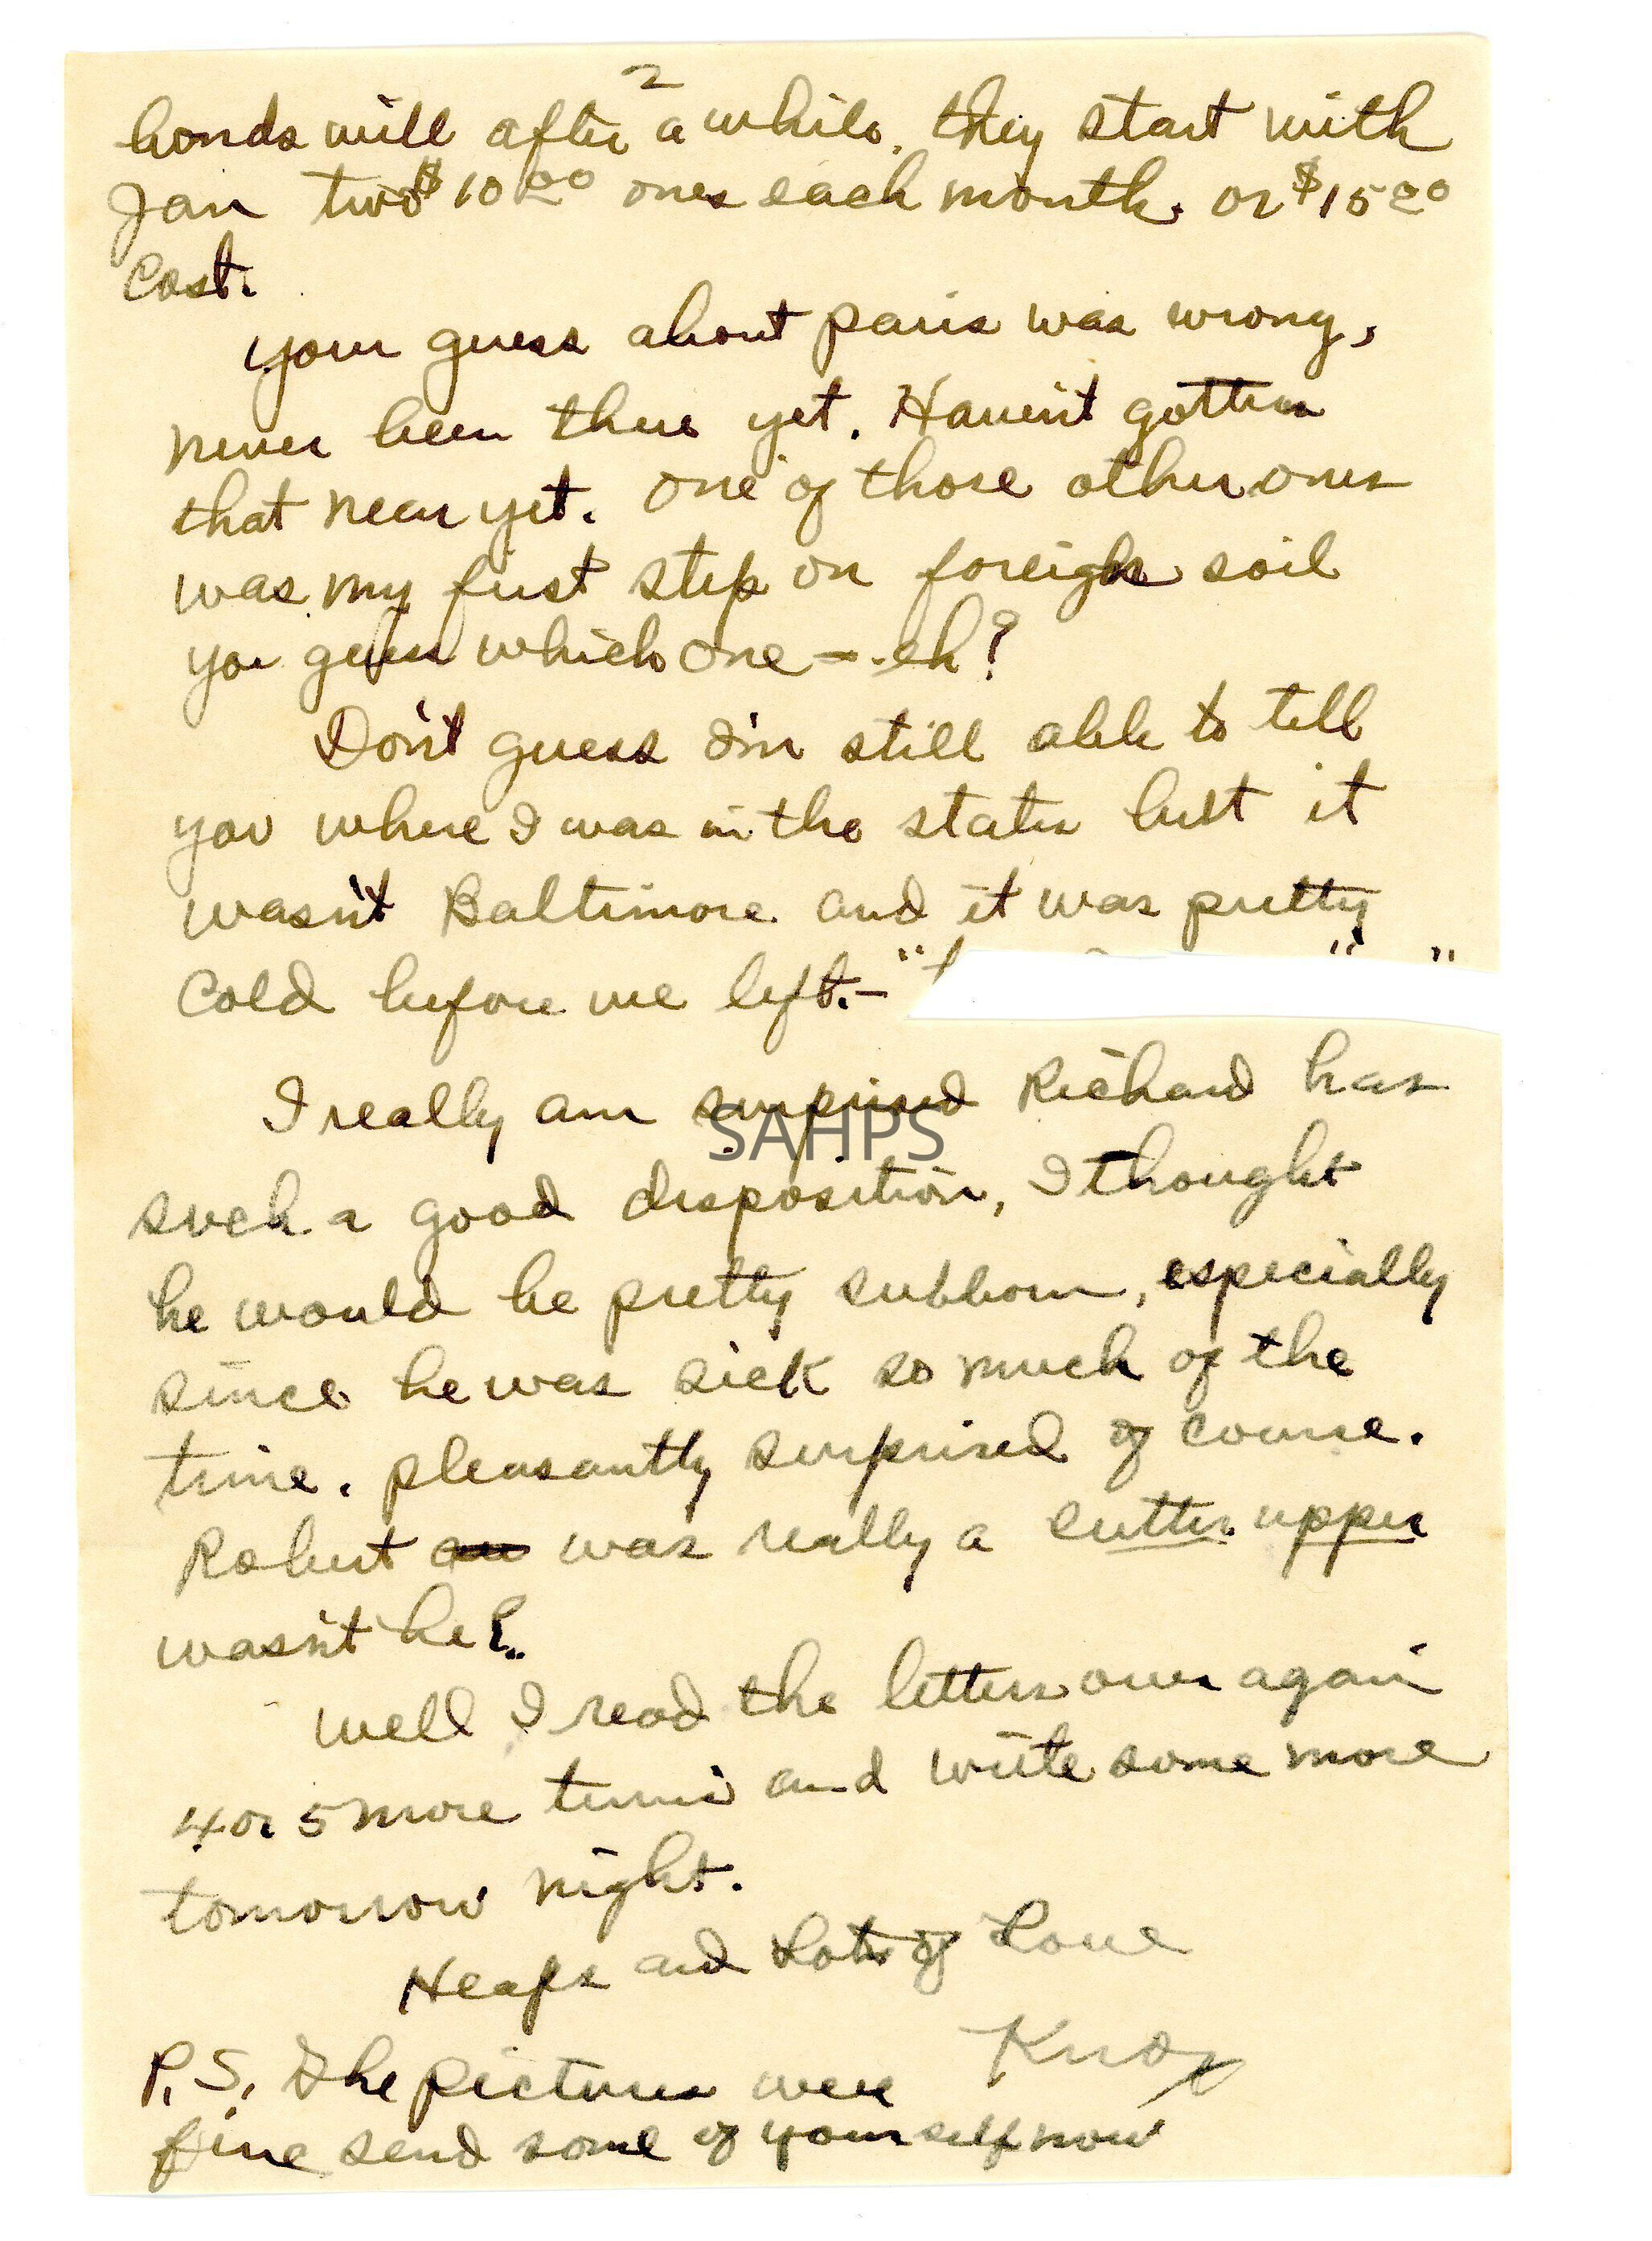 2
bonds will after a while. they start with
Jan two $10.00 ones each month. or $15.00
Cost.
your guess about paris was wrong,
never been there yet. Haven't gotten
that near yet. One of those other ones
was my first step on foreign soil
you guess which one - eh?
Don't guess I'm still able to tell
you where I was in the states but it
wasn't Baltimore and it was pretty
Cold before we left. - "
I really am surprised Richard has
SAHPS
such a good disposition, I thought
he would be pretty subborn, especially
since he was sick so much of the
time. pleasantly surprised of course.
Robert was really a cutter upper
wasn't he?
well I read the letters over again
4 or 5 more times and write some more
tomorrow night.
Heaps and Lots of Love
Knox
P.S. The pictures were
fine send some of yourself now